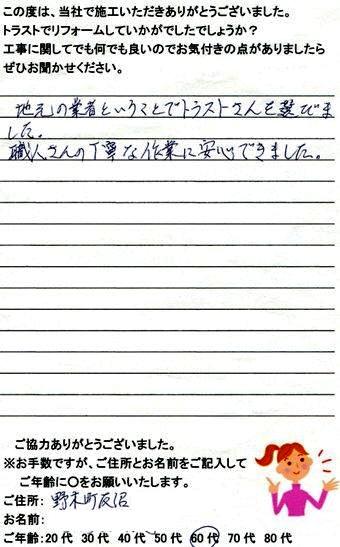 この度は、当社で施工いただきありがとうございました。
トラストでリフォームしていかがでしたでしょうか?
工事に関してでも何でも良いのでお気付きの点がありましたら
ぜひお聞かせください。
地元の業者ということでトラストさんを選びま
した。
職人さんの丁寧な作業に安心できました。
ご協力ありがとうございました。
※お手数ですが、ご住所とお名前をご記入して
ご年齢に〇をお願いいたします。
ご住所: 野木町友沼
お名前:
ご年齢:20代 30代 40代 50代 60代 70代 80代